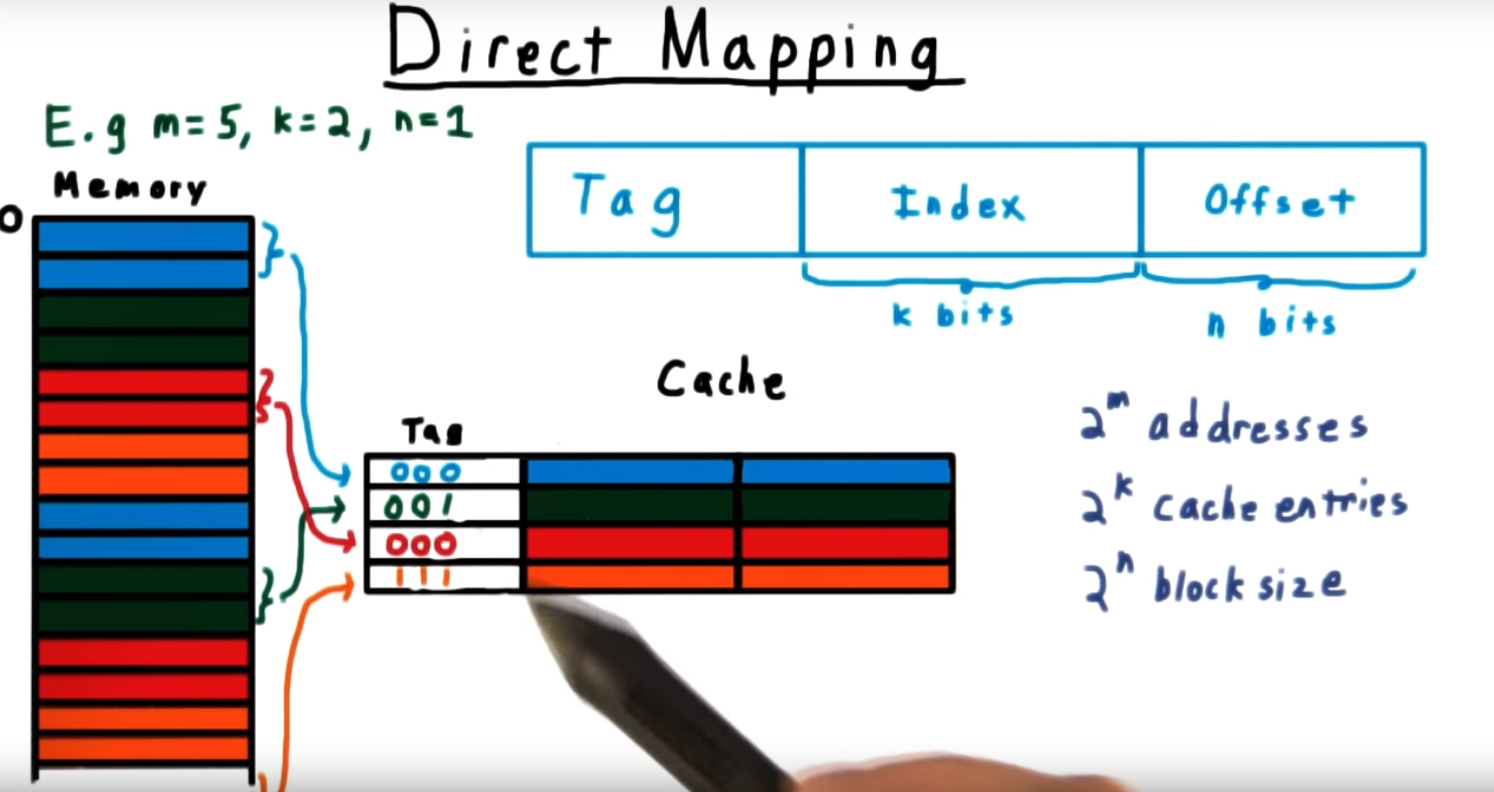 Direct Mapping
E.g m=5, k=2, n=1
Memory
0
Tag Index Offset
k bits
n bits
Cache
Tag
000
001
000
111
2^m addresses
2^k cache entries
2^n block size